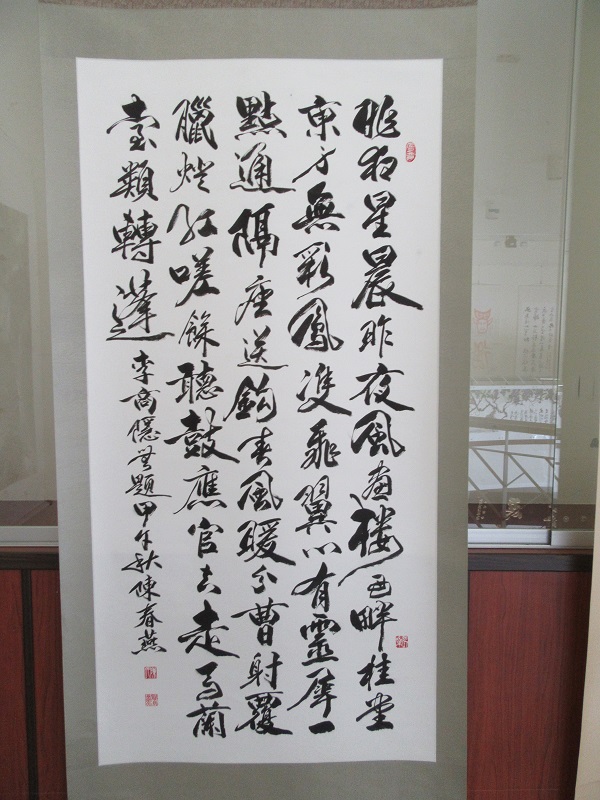 昨夜星晨昨夜風畫樓西畔桂堂
東身無彩鳳雙飛翼心有靈犀一
點通隔座送鈎春風暖分曹射覆
臘燈紅嗟餘聽鼓應官去走馬蘭
臺類轉蓬
李商隱無題甲午秋陳春燕